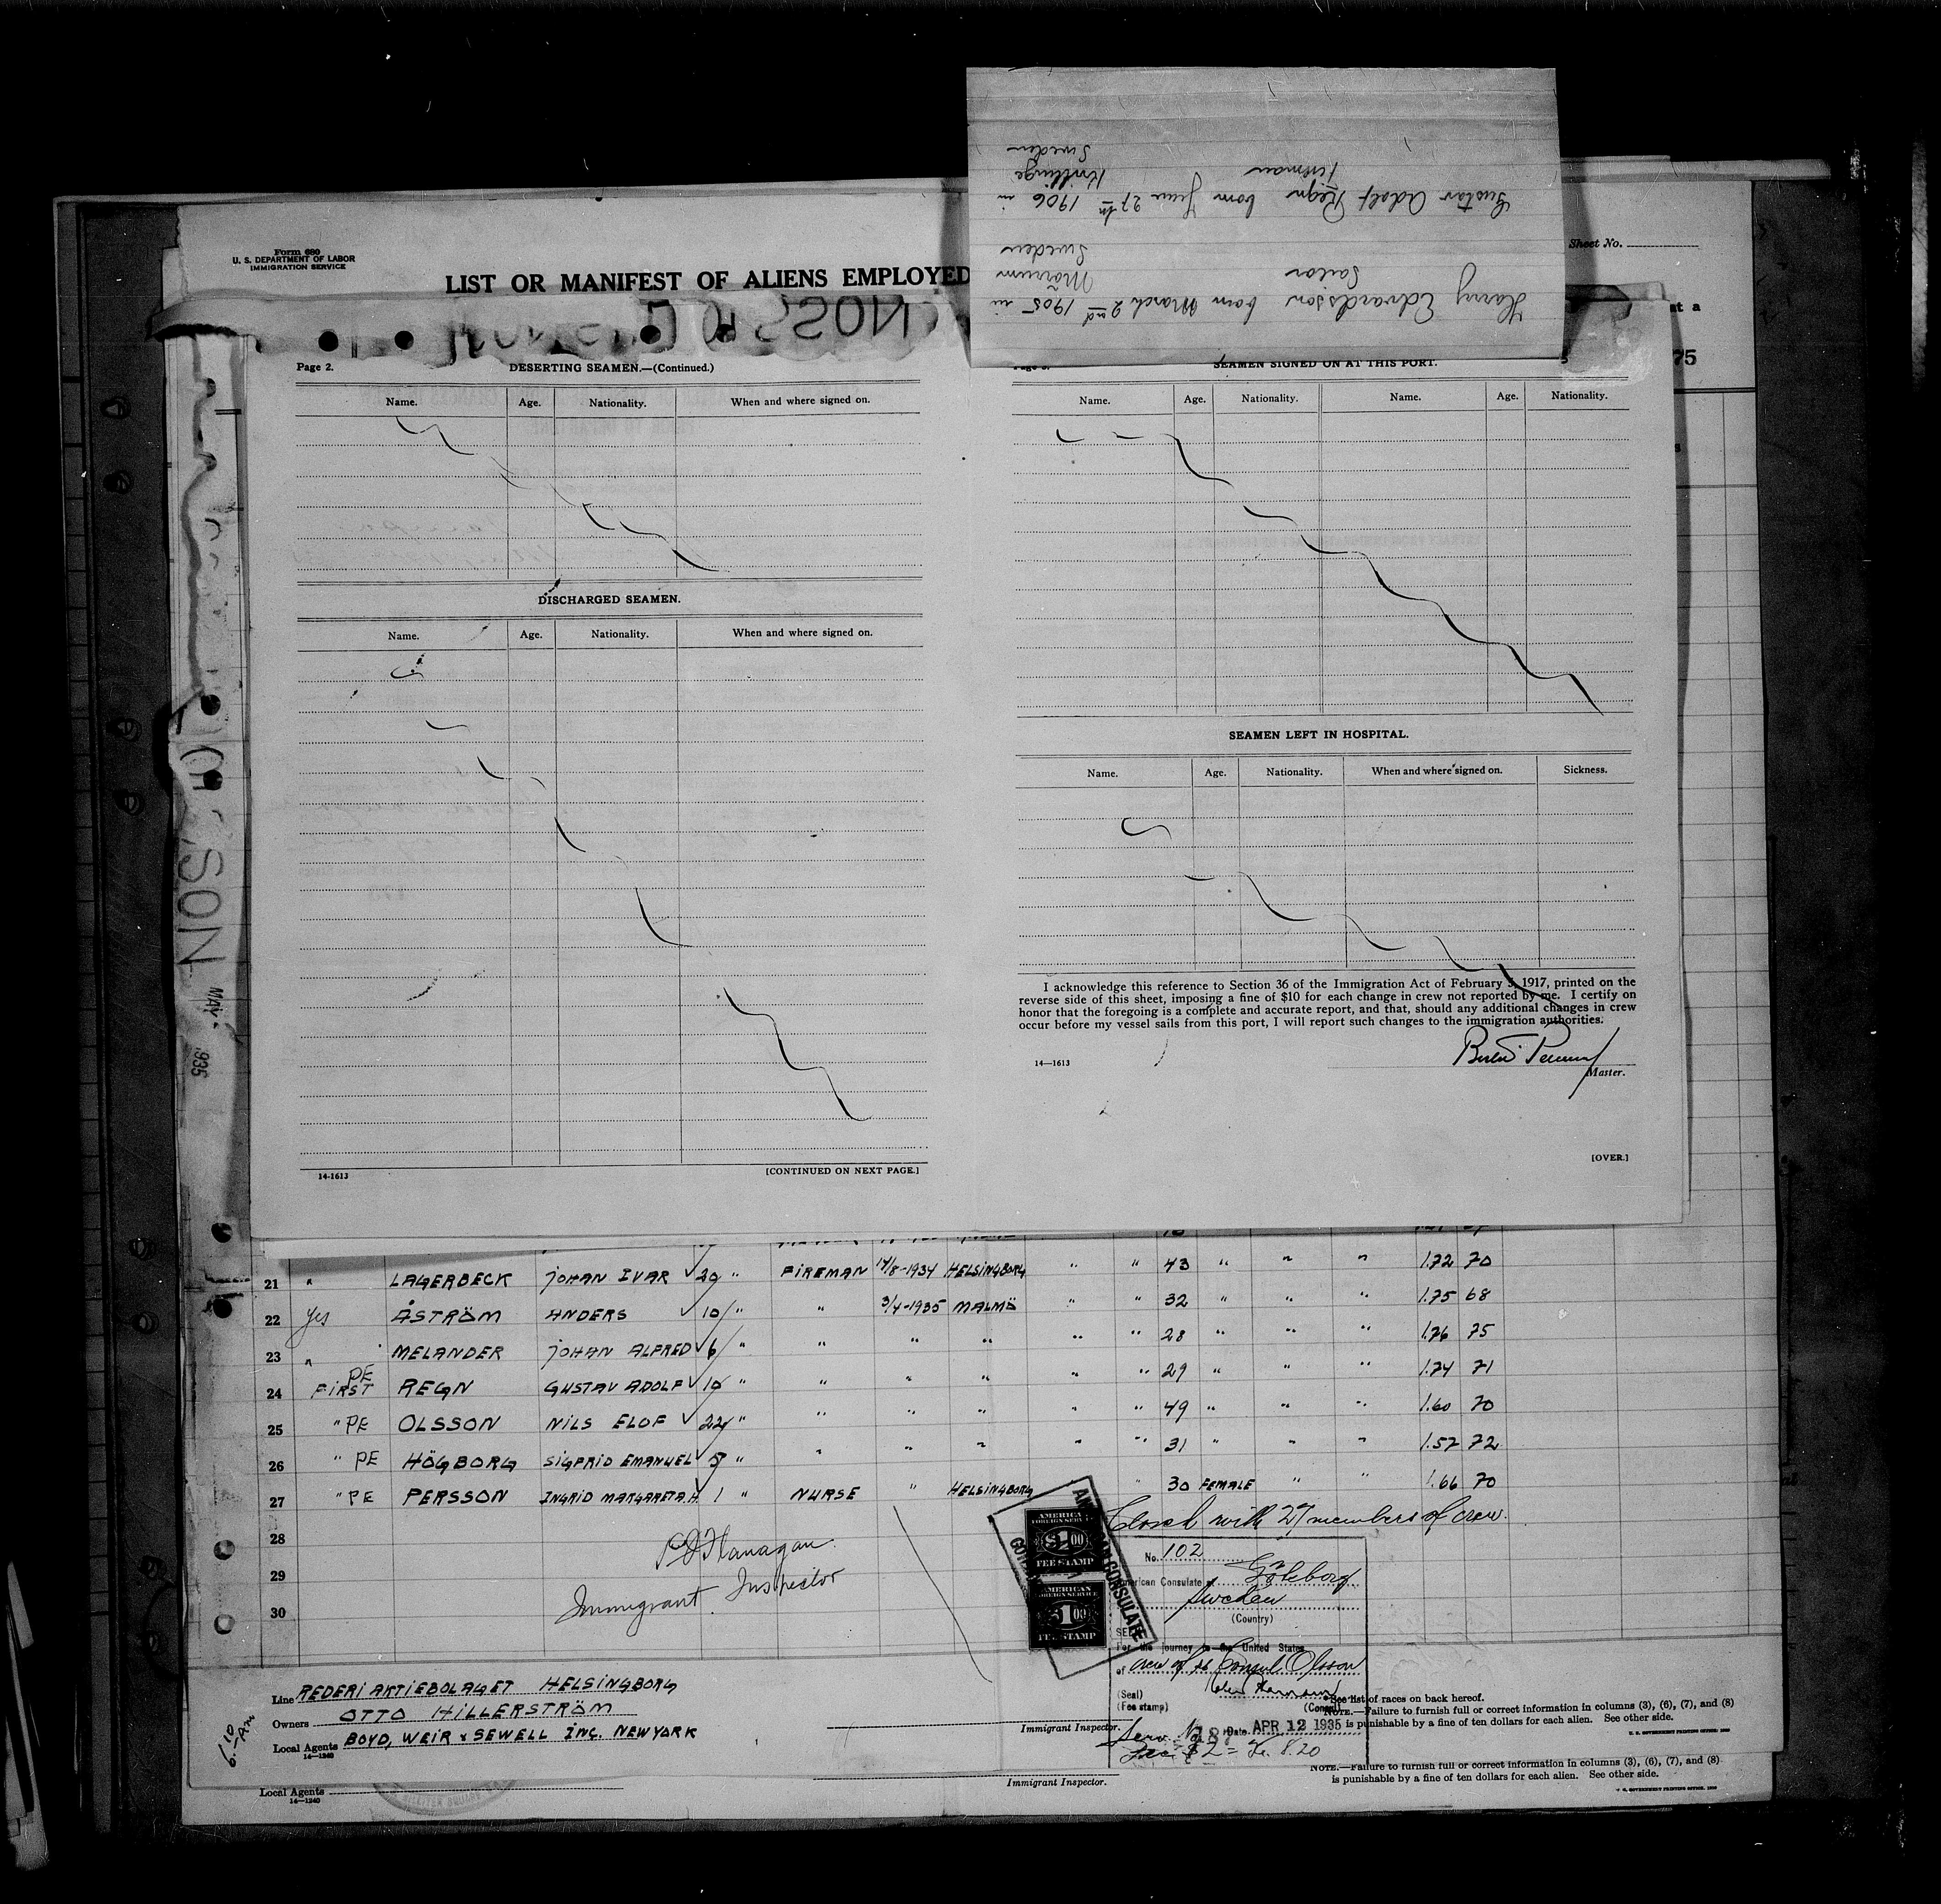 Harry Edvardsson born March 2nd 1905 in
Sailor Mörrum
Sweden
Gustav Adolf Regn born June 27th 1906 in
Fireman Knislinge
Sweden
Form 680
U. S. DEPARTMENT OF LABOR
IMMIGRATION SERVICE
Sheet No.
LIST OR MANIFEST OF ALIENS EMPLOYED
at a
75
Page 2.
DESERTING SEAMEN.—(Continued.)
Name. Age. Nationality. When and where signed on.
DISCHARGED SEAMEN.
Name. Age. Nationality. When and where signed on.
14-1613
[CONTINUED ON NEXT PAGE.]
SEAMEN SIGNED ON AT THIS PORT.
Name. Age. Nationality. Name. Age. Nationality.
SEAMEN LEFT IN HOSPITAL.
Name. Age. Nationality. When and where signed on. Sickness.
I acknowledge this reference to Section 36 of the Immigration Act of February 5, 1917, printed on the
reverse side of this sheet, imposing a fine of $10 for each change in crew not reported by me. I certify on
honor that the foregoing is a complete and accurate report, and that, should any additional changes in crew
occur before my vessel sails from this port, I will report such changes to the immigration authorities.
14—1613
Master.
[OVER.]
SON
MAY
935
21 " LAGERBECK JOHAN IVAR 29 " FIREMAN 14/8-1934 HELSINGBORG " " 43 " " " 1.72 70
22 Yes ÅSTRÖM ANDERS 10 " " 3/4-1935 MALMÖ " " 32 " " " 1.75 68
23 " MELANDER JOHAN ALFRED 6 " " " " " " 28 " " " 1.76 75
24 PE FIRST REGN GUSTAV ADOLF 10 " " " " " " 29 " " " 1.74 71
25 " PE OLSSON NILS ELOF 22 " " " " " " 49 " " " 1.60 70
26 " PE HÖGBORG SIGFRID EMANUEL 5 " " " " " " 31 " " " 1.57 72
27 " PE PERSSON INGRID MARGARETA.H. 1 " NURSE " HELSINGBORG " 30 FEMALE " " 1.66 70
28
29
30
Closed with 27 members of crew.
Flanagan
Immigrant Inspector
AMERICAN
FOREIGN SERVICE
$1.00
FEE STAMP
AMERICAN
FOREIGN SERVICE
$1.00
FEE STAMP
CONSULATE
No. 102
American Consulate at Göteborg
Sweden
(Country)
SEEN
For the journey to the United States
of crew of ss Consul Olsson
(Seal)
(Fee stamp) (Consul)
Date APR 12 1935
Serv. No. 187
Fee: $2 = Kr. 8.20
Line REDERI AKTIEBOLAGET HELSINGBORG
Owners OTTO HILLERSTRÖM
Local Agents BOYD, WEIR & SEWELL INC. NEW YORK
14—1240
Immigrant Inspector.
See list of races on back hereof.
NOTE.—Failure to furnish full or correct information in columns (3), (6), (7), and (8)
is punishable by a fine of ten dollars for each alien. See other side.
U. S. GOVERNMENT PRINTING OFFICE
Local Agents
14—1240
Immigrant Inspector.
NOTE.—Failure to furnish full or correct information in columns (3), (6), (7), and (8)
is punishable by a fine of ten dollars for each alien. See other side.
U. S. GOVERNMENT PRINTING OFFICE